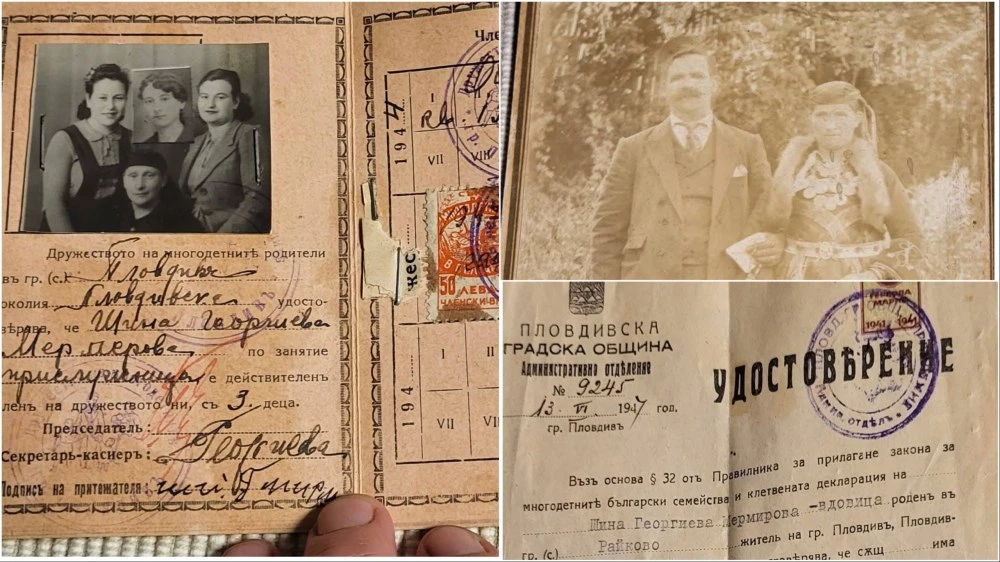 Дружеството на многодетнитѣ родители
въ гр. (с.) Пловдивъ
околия Пловдивска удосто-
вѣрява, че Шина Георгиева
Мермерова по занятие
е действителенъ
членъ на дружеството ни, съ 3. деца.
Председатель:
Секретарь-касиеръ: Георгиева
Подпись на притежателя
Чле
1944
I
VII
VIII
50 ЛЕВА
ЧЛЕНСКИ В
жес
194
I
II
VII
ПЛОВДИВСКА
ГРАДСКА ОБЩИНА
Административно отдѣление
№ 9245
13. VI. 1947 год.
гр. Пловдивъ
1941
УДОСТОВѢРЕНИЕ
Възъ основа § 32 отъ Правилника за прилагане закона за
многодетнитѣ български семейства и клетвената декларация на
Шина Георгиева Мермирова -вдовица роденъ въ
гр. (с.) Райково житель на гр. Пловдивъ, Пловдив-
вѣрява, че сѫщ има